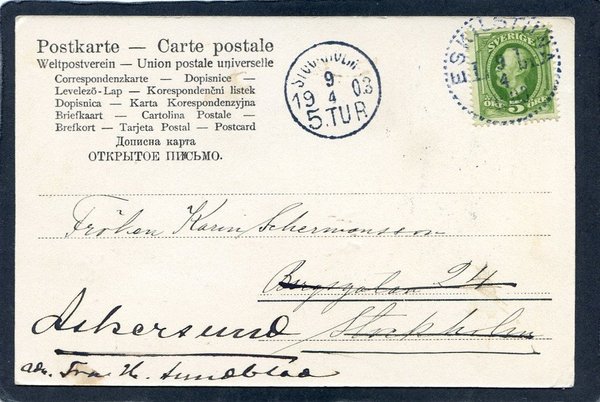 Postkarte — Carte postale
Weltpostverein — Union postale universelle
Correspondenzkarte — Dopisnice —
Levelező-Lap — Korespondenční listek
Dopisnica — Karta Korespondenzyjna
Briefkaart — Cartolina Postale —
Brefkort — Tarjeta Postal — Postcard
Дописна карта
ОТКРЫТОЕ ПИСЬМО.
STOCKHOLM 13
9
19 4 03
5.TUR
ESKILSTUNA
9
4
SVERIGE
5
ÖRE ÖRE
Fröken Karin Schermansson
Bergsgatan 24
Askersund Stockholm
adr. Fru H. Lundblad